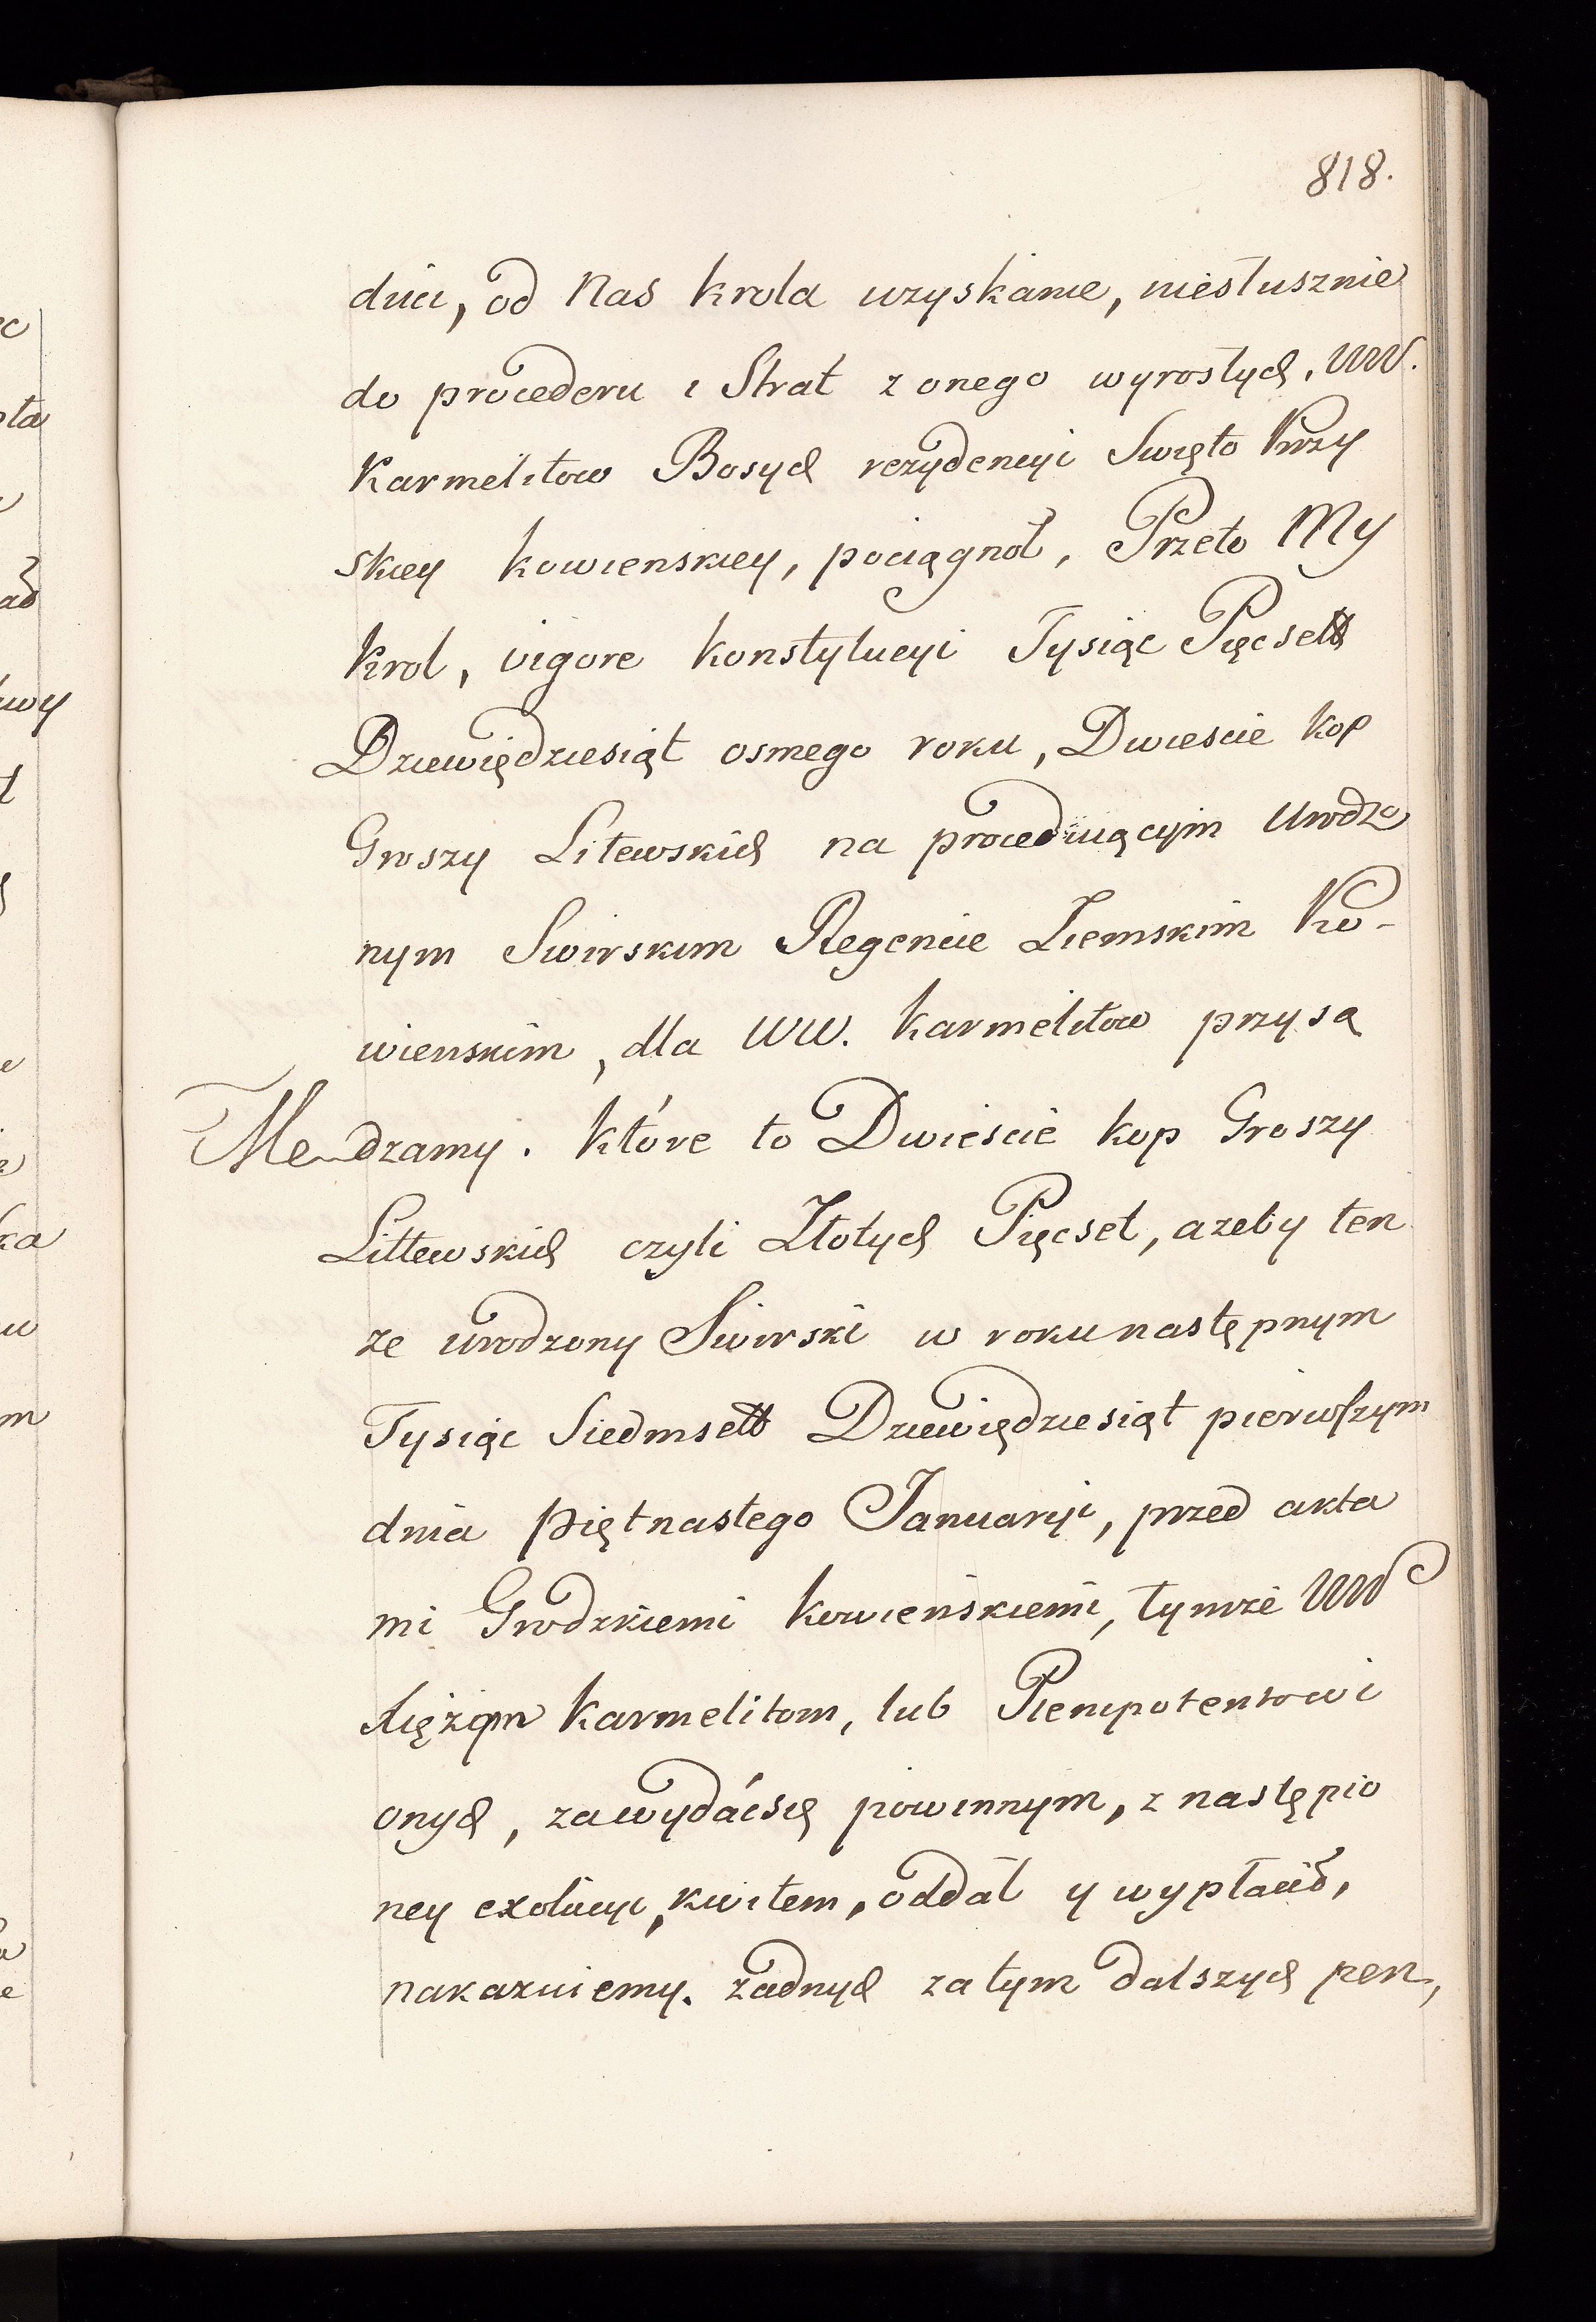 818.
dua, od Nas krola uzyskane, niesłusznie
do procederu i Strat z onego wyrosłych, WW.
Karmelitow Bosych rezydencyi Swięto Krzy
skiey kowienskiey, pociągnoł, Przeto My
Krol, vigore konstytucyi Tysiąc Pięcsett
Dziewiędziesiąt osmego roku, Dwiescie kop
Groszy Litewskich na proceduiącym Urodzo
nym Swirskim Regencie Ziemskim Ko-
wienskim, dla WW. Karmelitow przysą
Me dzamy. które to Dwiescie kop Groszy
Littewskich czyli Złotych Pięcset, azeby ten
ze urodzony Swirski w roku następnym
Tysiąc Siedmsett Dziewiędziesiąt pierwszym
dnia piętnastego Januaryi, przed akta
mi Grodzkiemi kowieńskiemi, tymże WW
Xiężom Karmelitom, lub Plenipotentowi
onych, za wydać się powinnym, z następio
ney exolucyi, kwitem, oddał y wypłacił,
nakazuiemy. żadnych zatym dalszych pen,